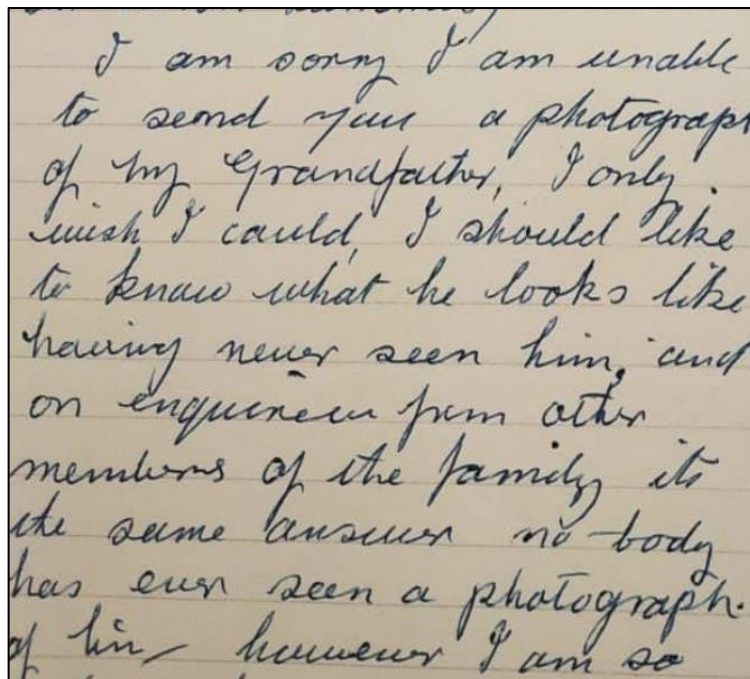 I am sorry I am unable
to send you a photograph
of my Grandfather, I only
wish I could, I should like
to know what he looks like
having never seen him, and
on enquiries from other
members of the family its
the same answer no-body
has ever seen a photograph.
of him however I am so